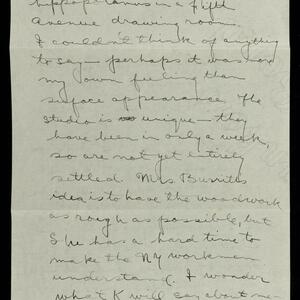 hippopotamus in a fifth
Avenue drawing room.
I couldn't think of anything
to say – perhaps it was more
my own feeling than
surface appearance. The
studio is so unique – they
have been in only a week,
so are not yet entirely
settled. Mrs. Burritts
idea is to have the woodwork
as rough as possible, but
she has a hard time to
make the NY workmen
understand. I wonder
what K will say about